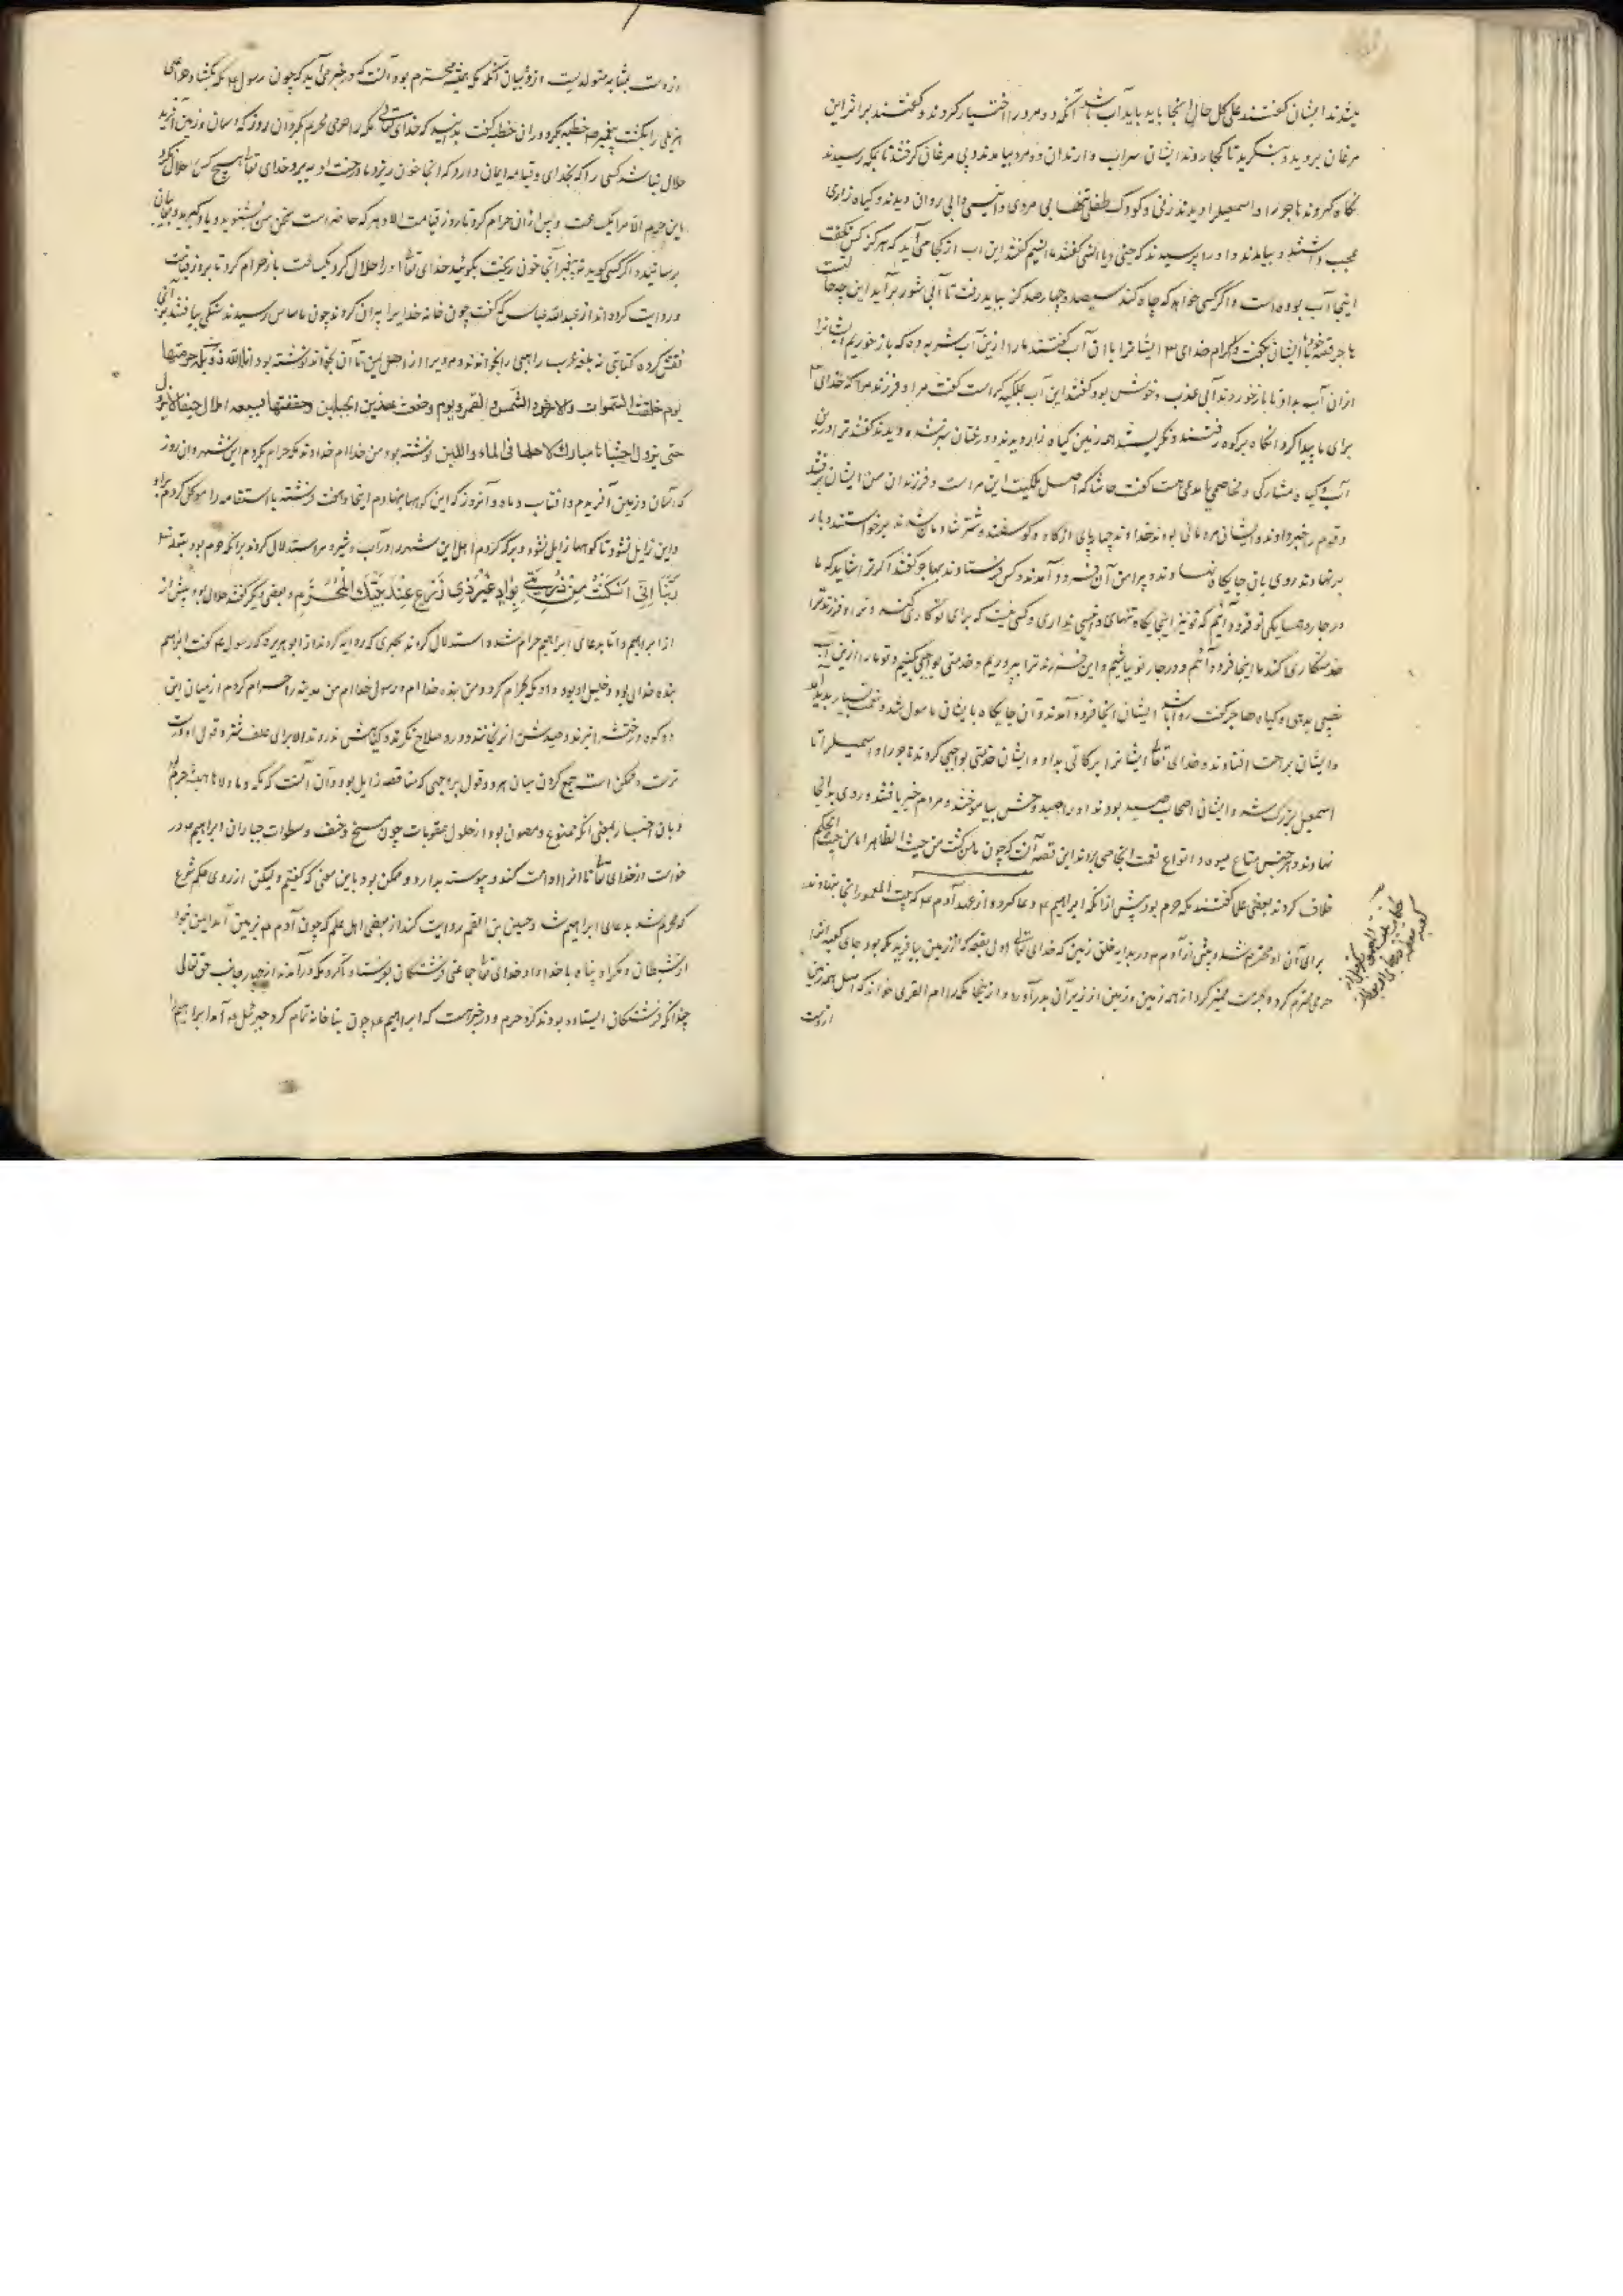 میشدند ایشان گفتند علی کل حال اینجا باید باید آب باشد آنکه دو مرد را اختیار کردند و گفتند بر اثر این
مرغان بروید و بنگرید تا کجا روند ایشان سراب وارند آن دو مرد بیامدند و پی مرغان گرفتند تا بمکه رسیدند
نگاه کردند هاجر را و اسمعیل را دیدند زنی و کودک طفلی تنها بی مردی و انیسی و آبی روان دیدند و گیاه زاری
عجب داشتند و بیامدند و او را پرسیدند که جنی و یا انسی گفت ما انسیم گفتند این آب از کجا می‌آید که هرگز کس نگفت
اینجا آب بوده است و اگر کسی خواهد که چاه کند سیصد و چهارصد گز بباید رفت تا آبی شور برآید این چه حالتست
هاجر قصه خود با ایشان بگفت و اکرام خدای ایشانرا با آن آب گفتند ما را ازین آب شربه ده که بازخوریم ایشانرا
ازان آب بداد تا بازخوردند آبی عذب و خوش بود گفتند این آب بملکیه کراست گفت مرا و فرزند مرا که خدای
برای ما پیدا کرد آنگاه بر کوه رفتند و نگریستند همه زمین گیاه زار دیدند و درختان سبز شده دیدند گفتند ترا درین
آب و گیاه مشارکی و مخاصمی یا مدعی هست گفت حاشا که اصل ملکیت این مراست و فرزندان من ایشان برفتند
و قوم را خبر دادند و ایشان مردمانی بودند خداوند چهارپای از گاو و گوسفند و شتر شادمان شدند برخواستند و بار
برنهادند روی بان جایگاه نهادند و پیرامن آن فرود آمدند و کس فرستادند بهاجر گفتند اگر ترا شاید که ما
در جوار همسایگی تو فرود آئیم که تو نیز اینجایگاه تنهای و انیسی نداری و کسی نیست که برای تو کاری کند و ترا و فرزند ترا
خدمتکاری کند ما اینجا فرود آئیم و در جوار تو باشیم و این فرزند ترا بپروریم و خدمتی بواجبی کنیم و تو ما را ازین آب
نصیبی بدهی و گیاه هاجر گفت روا باشد ایشان آنجا فرود آمدند و آن جایگاه بایشان ماهول شد و نعمت بسیار پدید آمد
و ایشان براحت افتادند و خدای تعالی ایشانرا برکاتی بداد و ایشان خدمتی بواجبی کردند هاجر را و اسمعیل را تا
اسمعیل بزرگ شد و ایشان اصحاب صید بودند او را صید وحش بیاموختند و مردم خبر یافتند و روی بدانجا
نهادند و هر جنس متاع میوه و انواع نعمت آنجا می بردند این قصه آن که چون مامن گشت من حیث الظاهر اما من حیث الحکم
خلاف کردند بعضی علما گفتند مکه حرم بود پیش از آنکه ابراهیم ع دعا کرد و از عهد آدم ع که بیت المعمور آنجا نهادند
برای آن او محترم شد و پیش از آدم ع در بدایه خلق زمین که خدای تعالی اول بقعه که از زمین بیافرید مکه بود جای کعبه آنرا
حرمی محترم کرد و بحرمت ممیز کرد از همه زمین و زمین از زیر آن بدرآورد و از اینجا مکه را ام القری خواند که اصل همه زمین
ازوست
ازوست بمثابه متولدیست ازو بیان آنکه مکه همیشه محترم بود آنست که در خبر می‌آید که چون رسول ع مکه بگشاد خزاعی
هذیلی را بکشت پیغمبر ص خطبه کرد و در آن خطبه گفت بدانید که خدای تعالی مکه را حرمی محرم بکرد آن روز که آسمان و زمین آفرید
حلال نباشد کسی را که بخدای و قیامه ایمان دارد که آنجا خون ریزد یا درخت او ببرد و خدای تعالی هیچ کس را حلال نکرد
این حرم الا مرا یک ساعت و پس از آن حرام کرد تا روز قیامت الا و هر که حاضر است سخن من بشنوید و یاد گیرید و بغایبان
برسانید و اگر کسی گوید نه پیغمبر آنجا خون ریخت بگوئید خدای تعالی او را حلال کرد یکساعت بازحرام کرد تا بروز قیامت
و روایت کرده‌اند از عبدالله عباس که گفت چون خانه خدایرا بیران کردند چون باساس رسیدند سنگی یافتند بر آنجا
نقش کرده کتابتی نه بلغه عرب راهبی را بخواندند و مردیرا از اهل یمن تا آن بخواند نوشته بود انا الله ذو بکه حرمتها
یوم خلقت السموات والارض والشمس والقمر و یوم وضعت هذین الجبلین وحففتها بسبعه املاک حنفا لا یزول
حتی یزول اخشباها مبارک لاهلها فی الماء واللبن نوشته بود من خداام خداوند مکه حرام بکردم این شهر و آن روز
که آسمان و زمین آفریدم و آفتاب و ماه و آنروز که این کوهها بنهادم اینجا و هفت فرشته با استقامه را موکل کردم بر او
و این زایل نشود تا کوهها زایل نشود و برکه کردم اهل این شهر را در آب و شیر و هم استدلال کردند برانکه حرم بود بقوله تعالی
رَبَّنَا اِنّی اَسْکَنْتُ مِنْ ذُرِّیَّتی بِوادٍ غَیْرِ ذی زَرْعٍ عِنْدَ بَیْتِکَ الْمُحَرَّمِ و بعضی دیگر گفتند حلال بود پیش از
از ابراهیم و اما بدعای ابراهیم حرام شد و استدلال کردند بخبری که روایه کردند از ابوهریره که رسول ع گفت ابراهیم
بنده خدای بود و خلیل او بود و او مکه بحرام کرد و من بنده خداام و رسول خداام من مدینه را حرام کردم از میان این
دو کوه درختش را نبرند و صیدش را نرنجانند و درو سلاح نگیرند و گیاهش ندروند الا برای علف شتر و قول اول درست
ترست و ممکن است جمع کردن میان هر دو قول بر وجهی که مناقضه زایل بود و آن آنست که مکه
و بان اخبار بمعنی آنکه ممنوع و مصون بود از حلول عقوبات چون مسخ و خسف و سطوات جباران ابراهیم ع در
خواست از خدای تعالی تا آنرا ادامت کند و پیوسته بدارد و ممکن بود باین معنی که گفتیم ولیکن از روی حکم شرع
که محرم شد بدعای ابراهیم شد و حسین بن القسم روایت کند از بعضی اهل علم که چون آدم ع بزمین آمد ایمن نبود
از شیطان و مکر او پناه با خدا داد خدای تعالی جماعتی فرشتگان بفرستاد تا گرد مکه درآمدند از چهار جانب حق تعالی
چندانکه فرشتگان ایستاده بودند کرد حرم و در خبر هست که ابراهیم ع چون بنا خانه تمام کرد جبرئیل ع آمد ابراهیم را